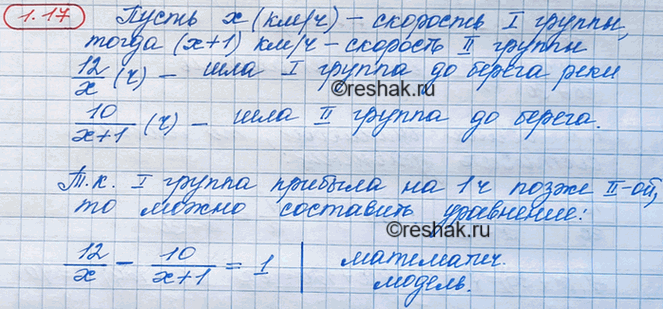 1.17
Пусть x (км/ч) – скорость I группы,
тогда (x+1) км/ч – скорость II группы
12/x (ч) – шла I группа до берега реки
©reshak.ru
10/(x+1) (ч) – шла II группа до берега.
Т.к. I группа прибыла на 1 ч позже II-ой,
то можно составить уравнение:
©reshak.ru
12/x - 10/(x+1) = 1 | математич.
модель.